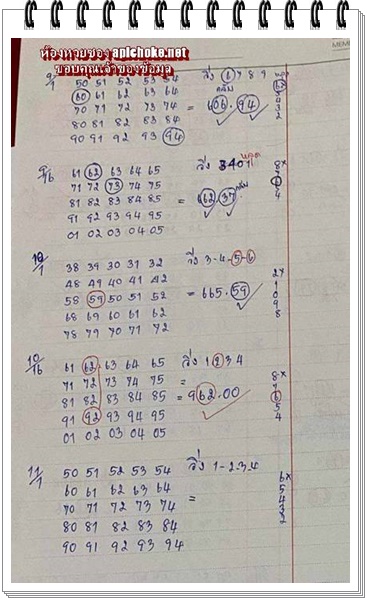 ห้องหวยซอง aplchoke.net
ขอบคุณเจ้าของข้อมูล
MEME
9/1 50 51 52 53 54 วิ่ง 6 7 8 9
60 61 62 63 64
70 71 72 73 74 = 606.94
80 81 82 83 84
90 91 92 93 94
9/16 61 62 63 64 65 วิ่ง 3401 8x
71 72 73 74 75
81 82 83 84 85 = 462.37
91 92 93 94 95 4
01 02 03 04 05
10/1 38 39 30 31 32 วิ่ง 3-4-5-6
48 49 40 41 42 2x
58 59 50 51 52 = 665.59 1
68 69 60 61 62 0
78 79 70 71 72 9
8
10/16 61 62 63 64 65 วิ่ง 1 2 3 4
71 72 73 74 75 = 8x
81 82 83 84 85 = 962.00 7
91 92 93 94 95 6
01 02 03 04 05 5
4
11/1 50 51 52 53 54 วิ่ง 1-2.3.4
60 61 62 63 64 6x
70 71 72 73 74 = 5
80 81 82 83 84 4
90 91 92 93 94 3
2